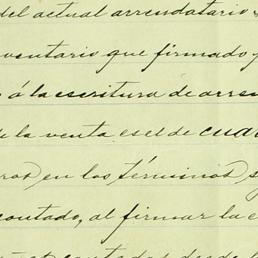 del actual arrendatario
ventario que firmado y
á la escritura de arren
de la venta es el de cua
ros en los términos s
contado, al firmar la e